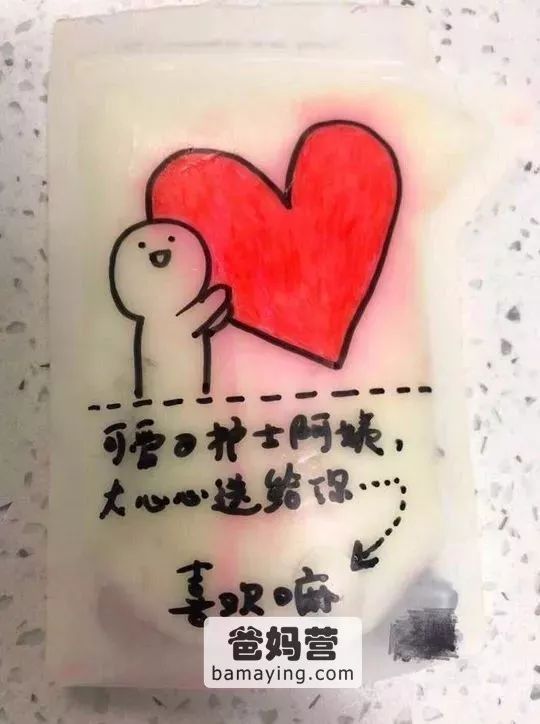 可爱的护士阿姨，
大心心送给你……
喜欢嘛
爸妈营
bamaying.com